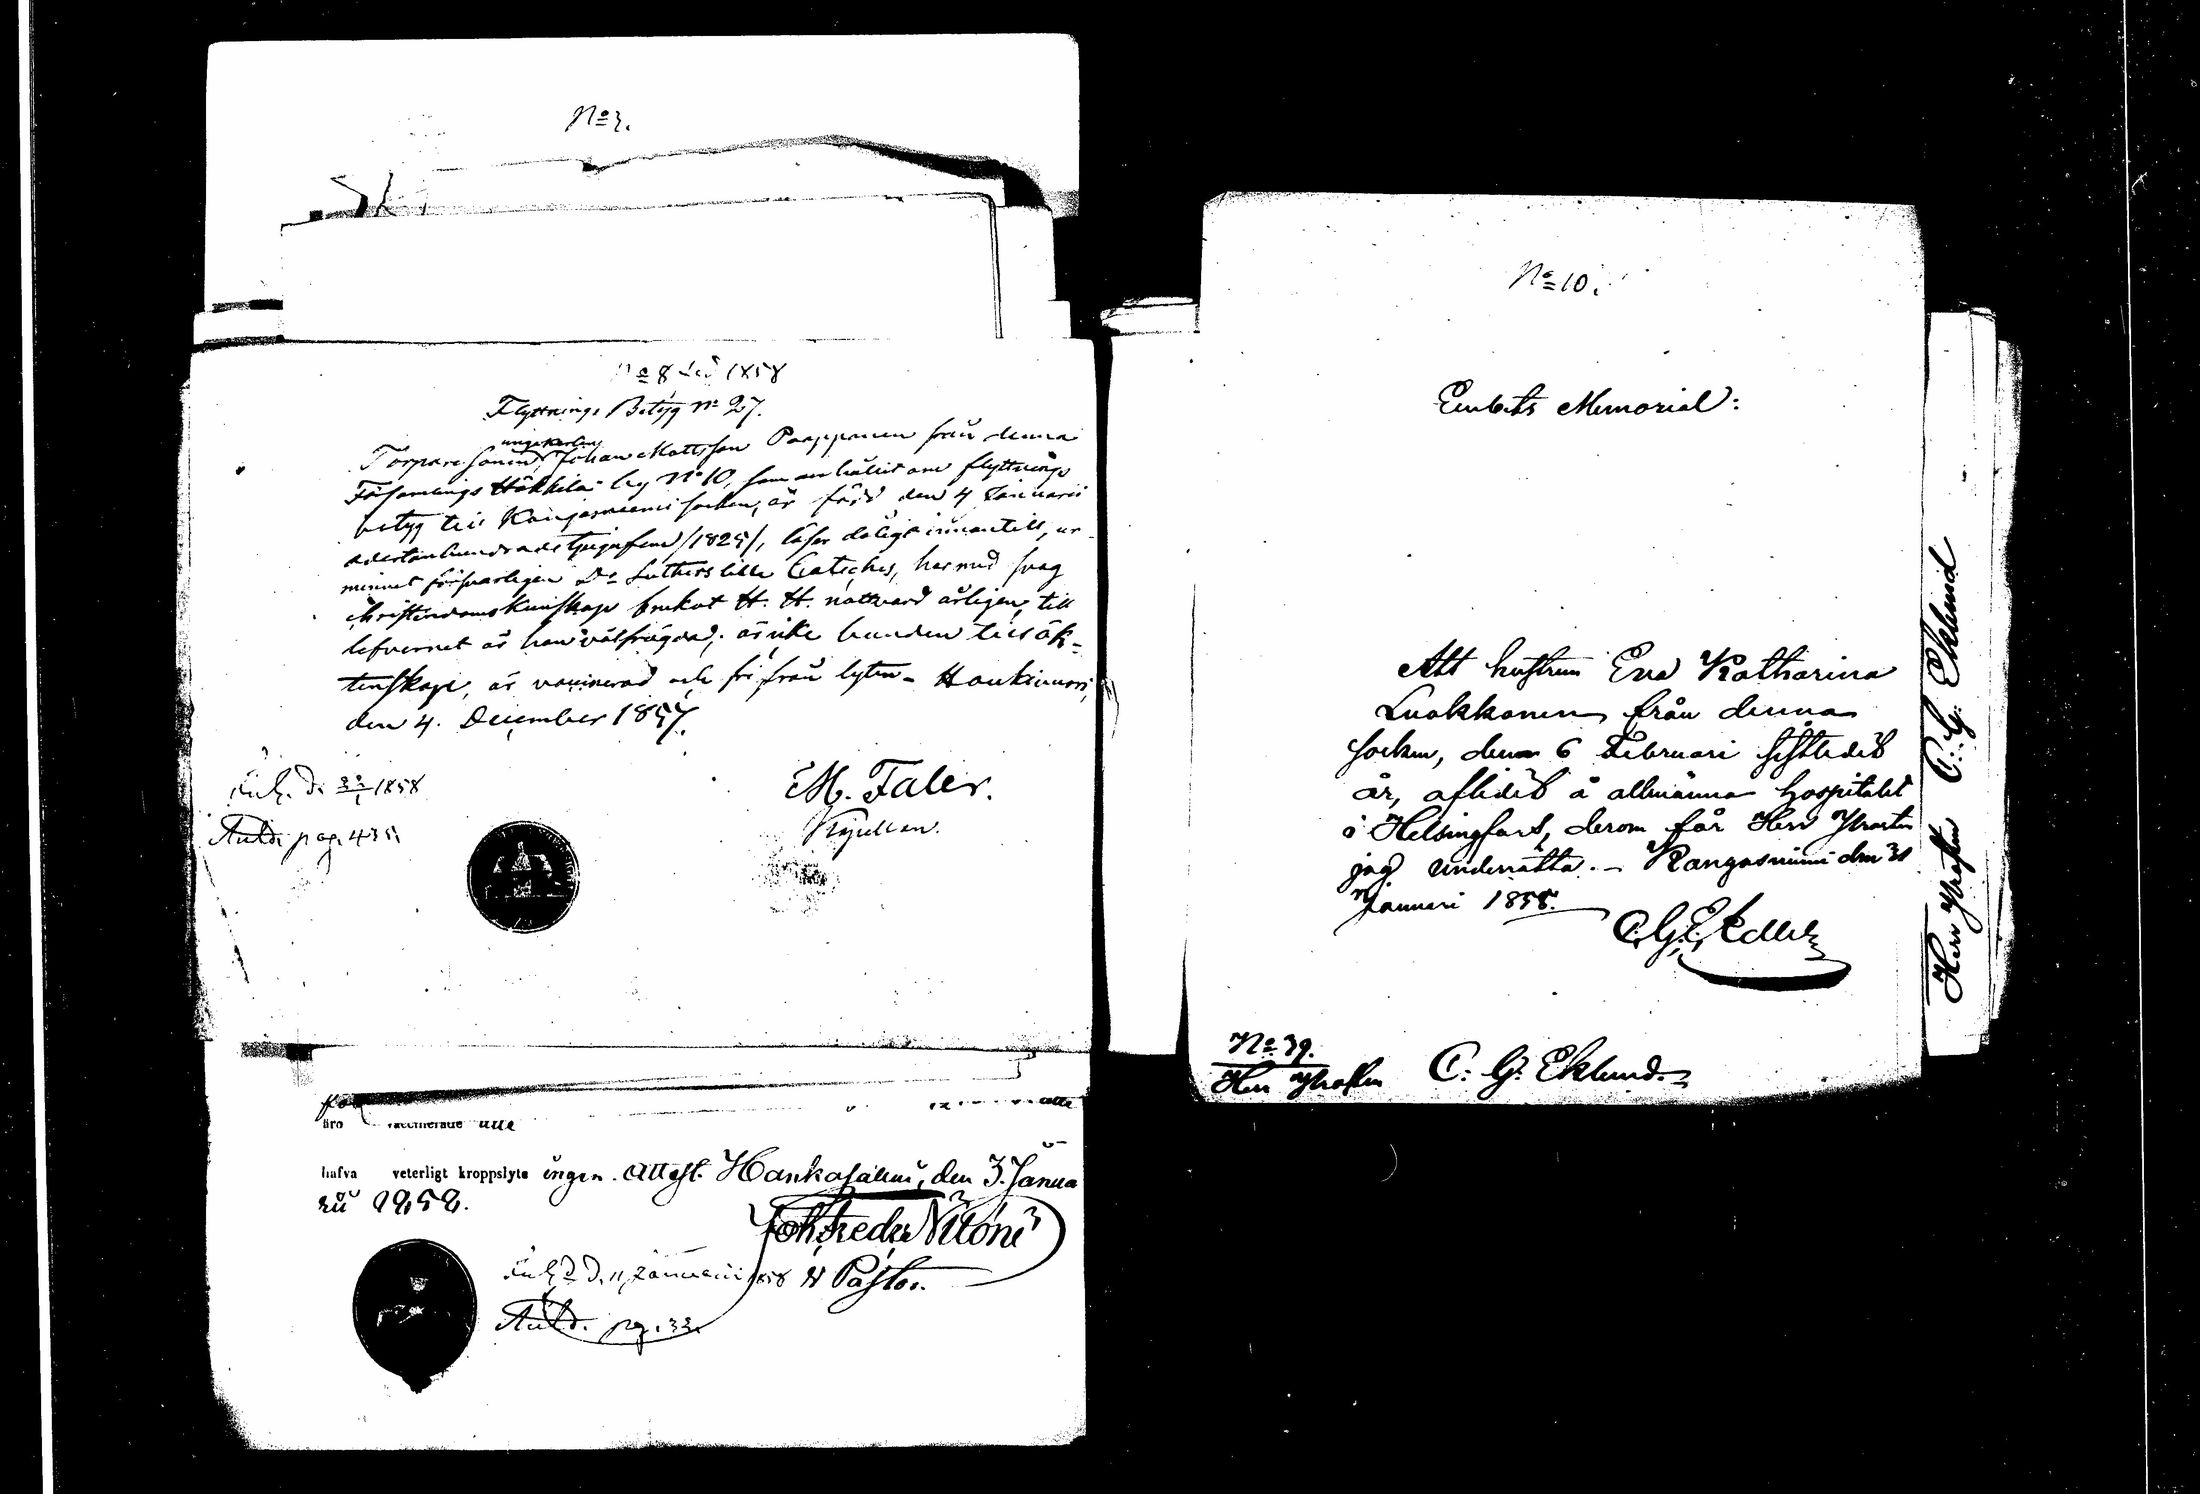 No 3.
No 8 1858
Flyttnings Betyg No 27.
ungkarlen
Torparesonen, Johan Mattsson Paappanen från denna
Församlings Häkkilä by No 10, som anhållit om flyttnings
betyg till Kangasniemi socken, är född den 4 Januarii
adertonhundradetjugufem /1825/, läser dåligt innantill, ur
minnet försvarligen Dr Luthers lilla Cateches, har med svag
christendomskunskap brukat H. H. nattvard årligen, till
lefvernet är han välfrägdad, är icke bunden till äk-
tenskap, är vaccinerad och fri från lyten - Haukivuori,
den 4. December 1857.
M. Faler.
Kapellan.
Inl. d. 23/1 1858
pag. 435
äro vaccinerade alla
hafva veterligt kroppslyte ingen. Attest. Hankasalmi, den 3. Janua
rii 1858.
Joh. Fredr.
Pastor.
Inl. d. 11 Januarii 1858
pag. 33.
No 10.
Embets Memorial:
Att hustrun Eva Katharina
Luukkonen från denna
socken, den 6 Februari sistledit
år, aflidit å allmänna hospitalet
i Helsingfors, derom får Herr Prosten
jag underrätta. - Kangasniemi den 31
Januari 1858.
C. G. Eklund
No 39.
Herr Prosten C. G. Eklund.
Herr Prosten C. G. Eklund